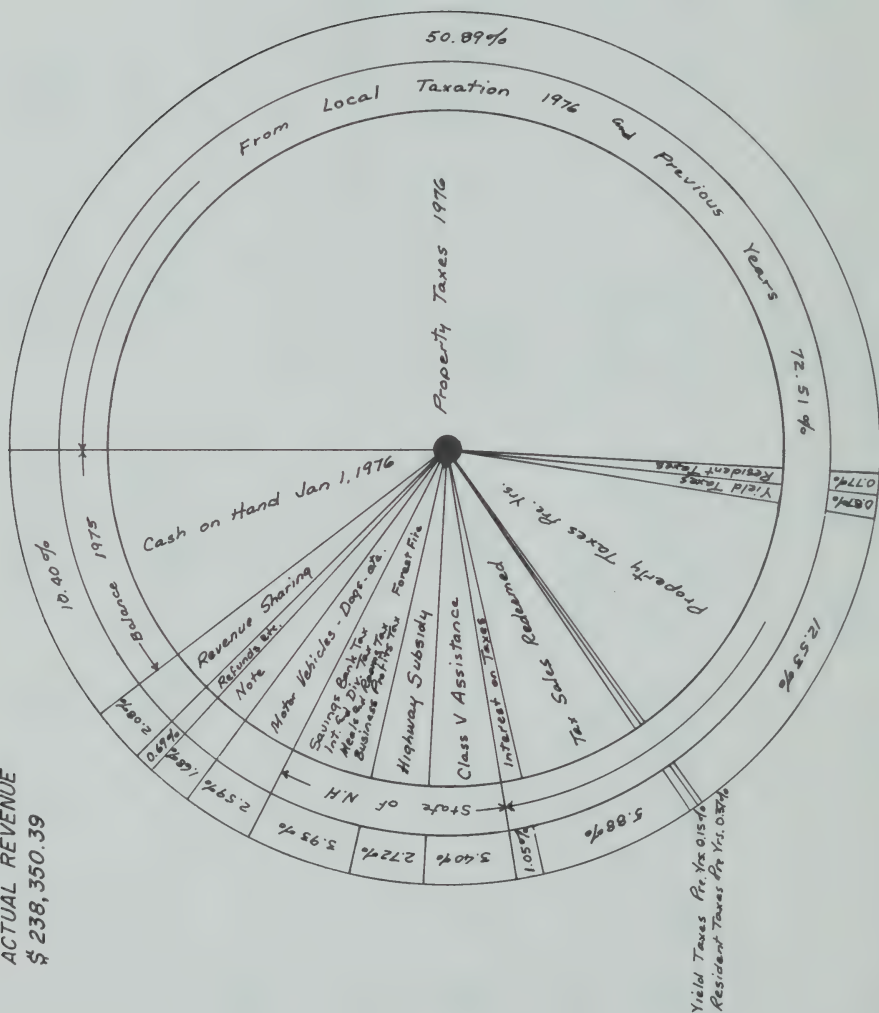 ACTUAL REVENUE
$ 238,350.39
50.89%
From Local Taxation 1976 and Previous Years 72.51%
Property Taxes 1976
Resident Taxes
0.77%
Yield Taxes
0.87%
Property Taxes Pre. Yrs.
12.53%
Yield Taxes Pre. Yrs 0.15%
Resident Taxes Pre Yrs. 0.37%
Tax Sales Redeemed
5.88%
Interest on Taxes
1.05%
State of N.H
Class V Assistance
3.40%
Highway Subsidy
2.72%
Savings Bank Tax
Int. and Div. Tax
Meals and Rooms Tax
Business Profits Tax
Forest Fire
Motor Vehicles - Dogs - etc.
2.59%
Note
1.68%
Refunds etc.
0.69%
Revenue Sharing
2.08%
Cash on Hand Jan 1, 1976
Balance 1975
10.40%